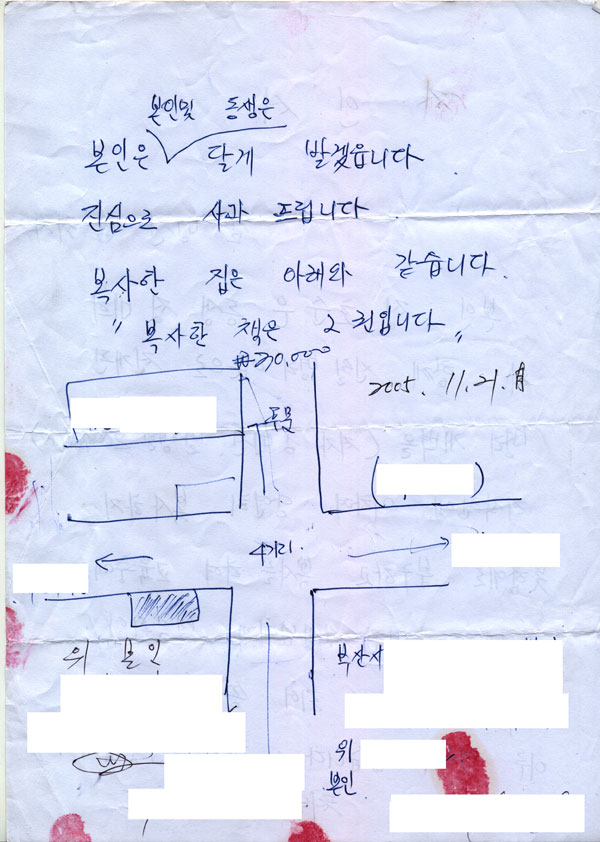 본인및 동생은
본인은 달게 받겠읍니다
진심으로 사과 드립니다.
복사한 집은 아래와 같습니다.
" 복사한 책은 2권입니다 "
₩230,000
2005. 11. 21. 月
후문
4거리.
위 본인
위
본인